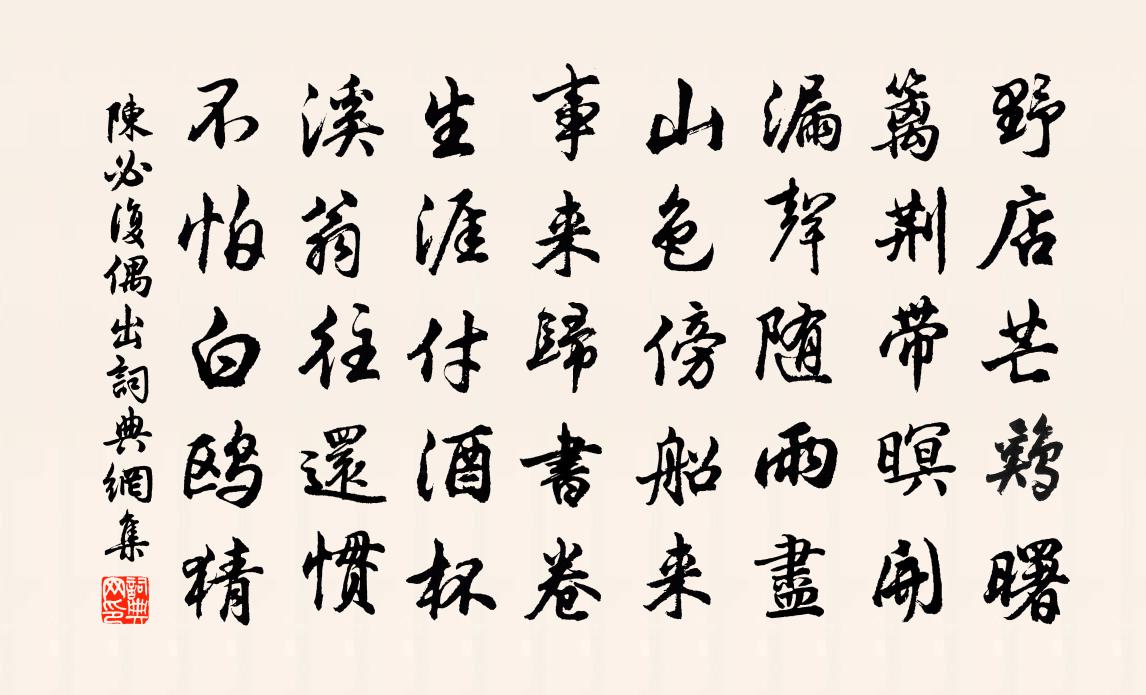 野店芒鷄曙
籬荆帶暝開
漏聲随雨盡
山色傍船来
事来歸書卷
生涯付酒杯
溪翁往還慣
不怕白鷗猜
陳必復偶出詞典網集
詞典網印